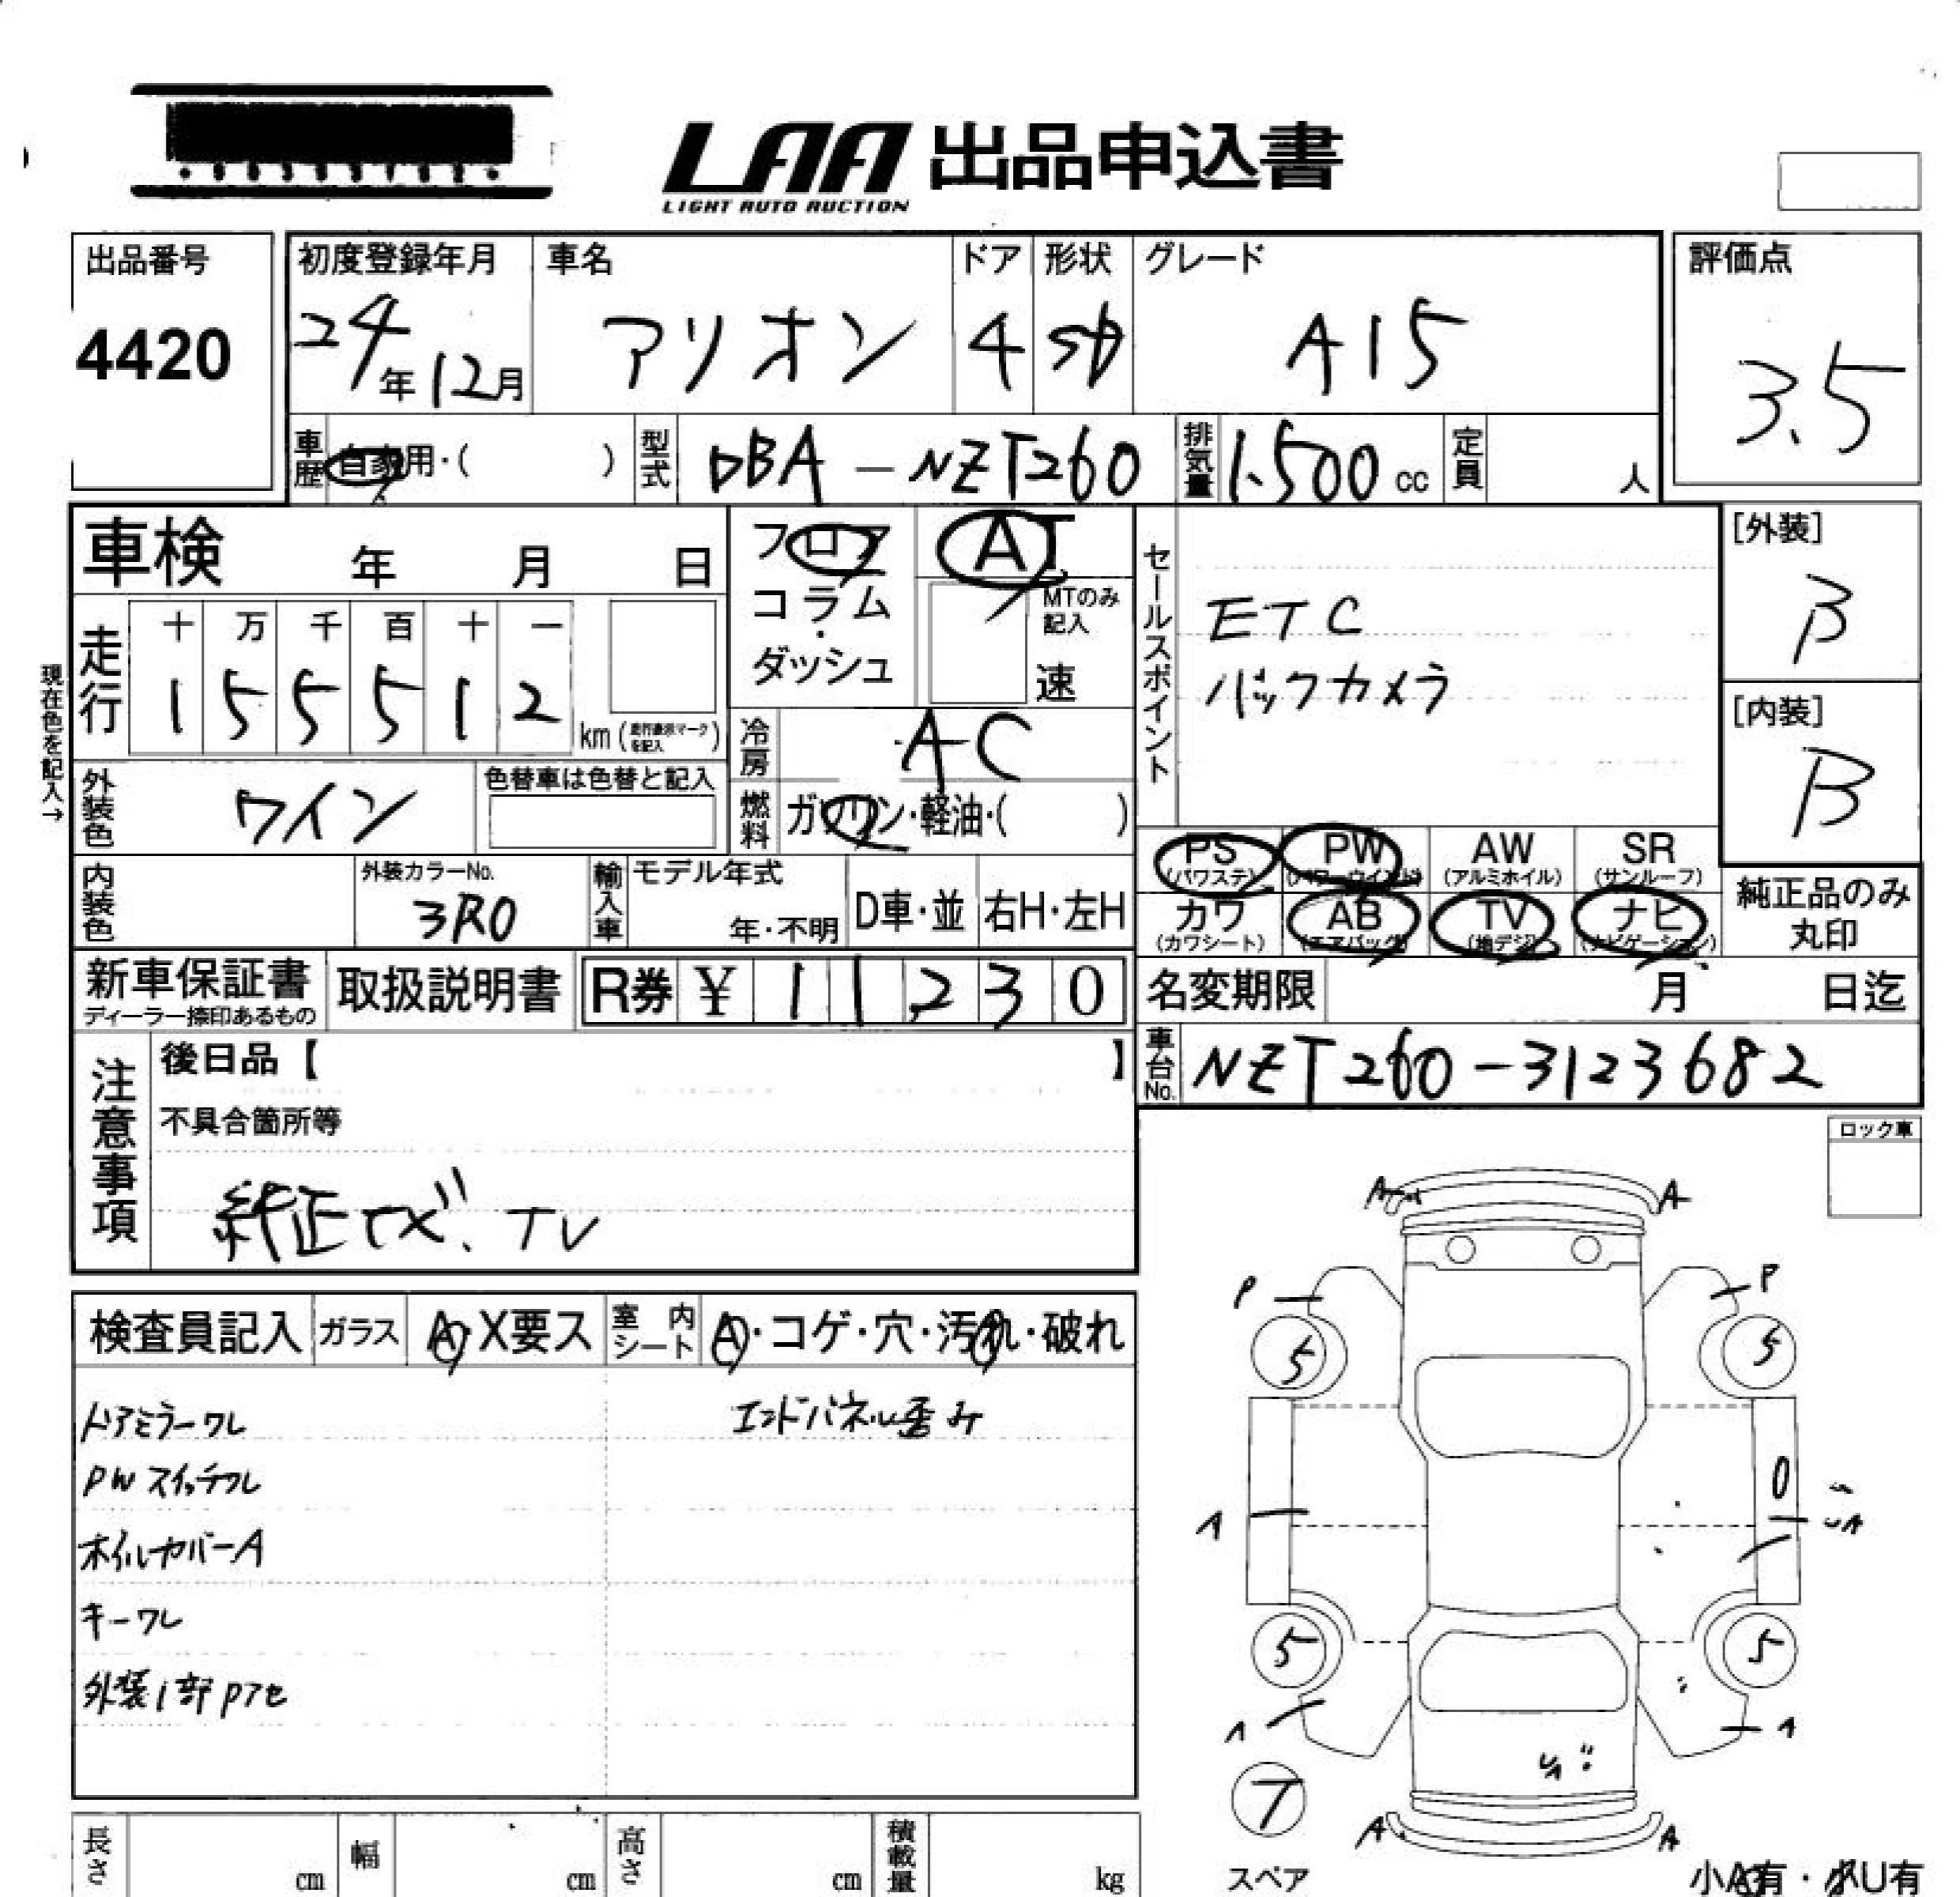 LAA 出品申込書
LIGHT AUTO AUCTION
出品番号
4420
初度登録年月
24年12月
車名
アリオン
ドア
4
形状
SD
グレード
A15
評価点
3.5
車歴
自家用・( )
型式
DBA-NZT260
排気量
1.500 cc
定員
人
車検 年 月 日
フロア
コラム
・
ダッシュ
AT
MTのみ記入
速
セールスポイント
ETC
バックカメラ
[外装]
B
[内装]
B
現在色を記入→
走行
十 万 千 百 十 一
1 5 5 5 1 2
km
冷房
AC
外装色
ワイン
色替車は色替と記入
燃料
ガソリン・軽油・( )
内装色
外装カラーNo.
3R0
輸入車
モデル年式
年・不明
D車・並
右H・左H
PS (パワステ)
PW (パワーウインド)
AW (アルミホイル)
SR (サンルーフ)
カワ (カワシート)
AB (エアバッグ)
TV (地デジ)
ナビ (ナビゲーション)
純正品のみ
丸印
新車保証書
ディーラー捺印あるもの
取扱説明書
R券 ¥ 1 1 2 3 0
名変期限 月 日迄
車台No.
NZT260-3123682
注意事項
後日品【 】
不具合箇所等
純正ナビ、TV
ロック車
検査員記入
ガラス
A・X要ス
室内シート
A・コゲ・穴・汚れ・破れ
ドアミラーワレ
エンドパネル歪み
PWスイッチワレ
ホイルカバーA
キーワレ
外装1部Pアセ
A
A
P
P
5
5
A
5
5
A
A
T
A
A
スペア
小A有・小U有
長さ cm
幅 cm
高さ cm
積載量 kg